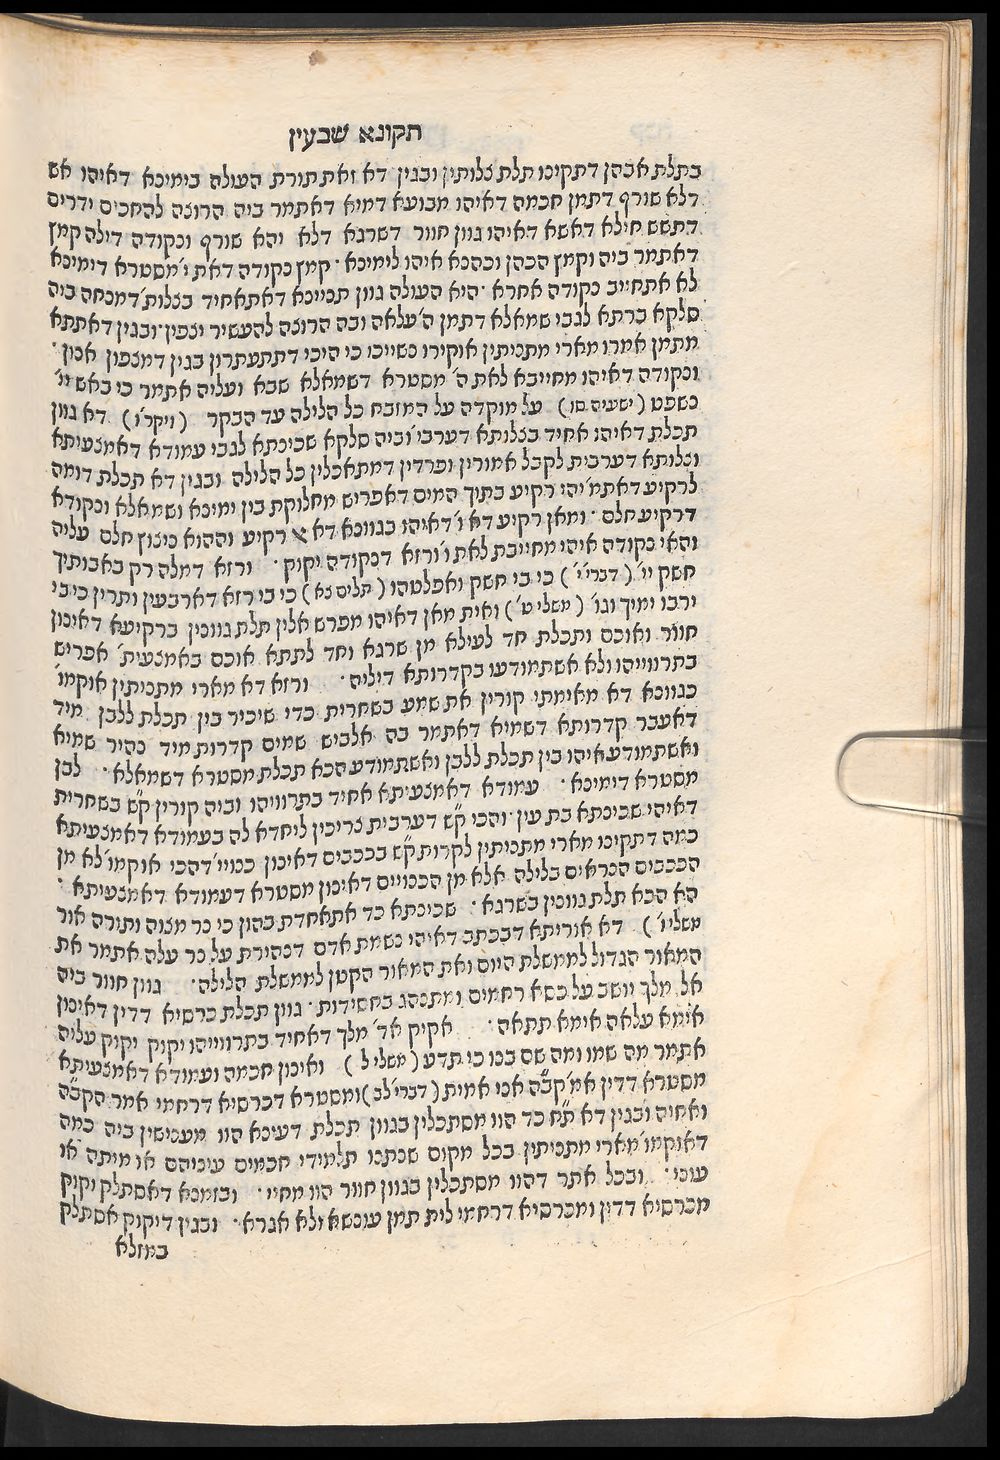 תקונא שבעין
בתלת אבהן דתקינו תלת צלותין ובגין דא זאת תורת העולה בימינא דאיהו אש
דלא שורף דתמן חכמה דאיהו מבועא דמיא דאתמר ביה הרוצה להחכים ידרים
דתשש חילא דאשא דאיהו גוון חוור דשרגא דלא והא שורף ונקודה דילה קמץ
דאתמר ביה וקמץ הכהן וכהנא איהו לימינא ׳ קמץ נקודה דאת י׳ מסטרא דימינא
לא אתחייב נקודה אחרא ׳ היא העולה גוון תניינא דאתאחיד בצלות׳ דמנחה ביה
סלקא ברתא לגבי שמאלא דתמן ה׳ עלאה ובה הרוצה להעשיר יצפין ׳ ובגין דאתתא
מתמן אמרו מארי מתניתין אוקירו נשייכו כי היכי דתתעתרון בגין דמצפון אכון ׳
ונקודה דאיהו מחייבא לאת ה׳ מסטרא דשמאלא שבא ועליה אתמר כי באש יי׳
נשפט ( ישעיה סו ) על מוקדה על המזבח כל הלילה עד הבקר ( ויקר׳ ו ) דא גוון
תכלת דאיהו אחיד בצלותא דערבי׳ וביה סלקא שכינתא לגבי עמודא דאמצעיתא
וצלותא דערבית לקבל אמורין ופרדין דמתאכלין כל הלילה ובגין דא תכלת דומה
לרקיע דאתמ׳ יהי רקיע בתוך המים דאפריש מחלוקת בין ימינא ושמאלא ונקודא
דרקיע חלם ׳ ומאן רקיע דא ו׳ דאיהו בגוונא דא א רקיע וההוא ניצוץ חלם עליה
והאי נקודה איהי מחייבת לאת ו׳ ורזא דנקודה יקוק ׳ ורזא דמלה רק באבותיך
חשק יי׳ ( דברי׳ י׳ ) כי בי חשק ואפלטהו ( תלים צא ) כי בי רזא דארבעין ותרין כי בי
ירבו ימיך וגו׳ ( משלי ט׳ ) ואית מאן דאיהו מפרש אלין תלת גוונין ברקיעא דאינון
חוור ואוכם ותכלת חד לעילא מן שרגא וחד לתתא אוכם באמצעית׳ אפריש
בתרווייהו ולא אשתמודעו בקדרותא דיליה ׳ ורזא דא מארי מתניתין אוקמו׳
כגוונא דא מאימתי קורין את שמע בשחרית כדי שיכיר בין תכלת ללבן מיד
דאעבר קדרותא דשמיא דאתמר בה אלביש שמים קדרות מיד נהיר שמיא
ואשתמודע איהו בין תכלת ללבן ואשתמודע הכא תכלת מסטרא דשמאלא ׳ לבן
מסטרא דימינא ׳ עמודא דאמצעיתא אחיד בתרווייהו וביה קורין ק״ש בשחרית
דאיהי שכינתא בת עין ׳ והכי ק״ש דערבית צריכין ליחדא לה בעמודא דאמצעיתא
כמה דתקינו מארי מתניתין לקרות ק״ש בככבים דאינון כנויי׳ דהכי אוקמו׳ לא מן
הככבים הנראים בלילה אלא מן הכנויים דאינון מסטרא דעמודא דאמצעיתא ׳
הא הכא תלת גוונין בשרגא ׳ שכינתא כד אתאחדת בהון כי נר מצוה ותורה אור
משלי ו׳ ) דא אוריתא דבכתב דאיהי נשמת אדם דנהירת על נר עלה אתמר את
המאור הגדול לממשלת היום ואת המאור הקטן לממשלת הלילה ׳ גוון חוור ביה
אל מלך יושב על כסא רחמים ומתנהג בחסידות ׳ גוון תכלת כרסיא דדין דאינון
אימא עלאה אימא תתאה ׳ אקיק אד׳ מלך דאחיד בתרווייהו יקוק יקוק עליה
אתמר מה שמו ומה שם בנו כי תדע ( משלי ל ) ואינון חכמה ועמודא דאמצעיתא
מסטרא דדין אמ׳ קב״ה אני אמית ( דברי׳ לב ) ומסטרא דכרסיא דרחמי אמר הקב״ה
ואחיה ובגין דא ת״ח כד הוו מסתכלין בגוון תכלת דעינא הוו מענישין ביה כמה
דאוקמו׳ מארי מתניתין בכל מקום שנתנו תלמידי חכמים עיניהם או מיתה או
עוני ׳ ובכל אתר דהוו מסתכלין בגוון חוור הוו מחיי ׳ ובזמנא דאסתלק יקוק
מכרסיא דדין ומכרסיא דרחמי לית תמן עונשא ולא אגרא ׳ ובגין דיקוק אסתלק
במזלא